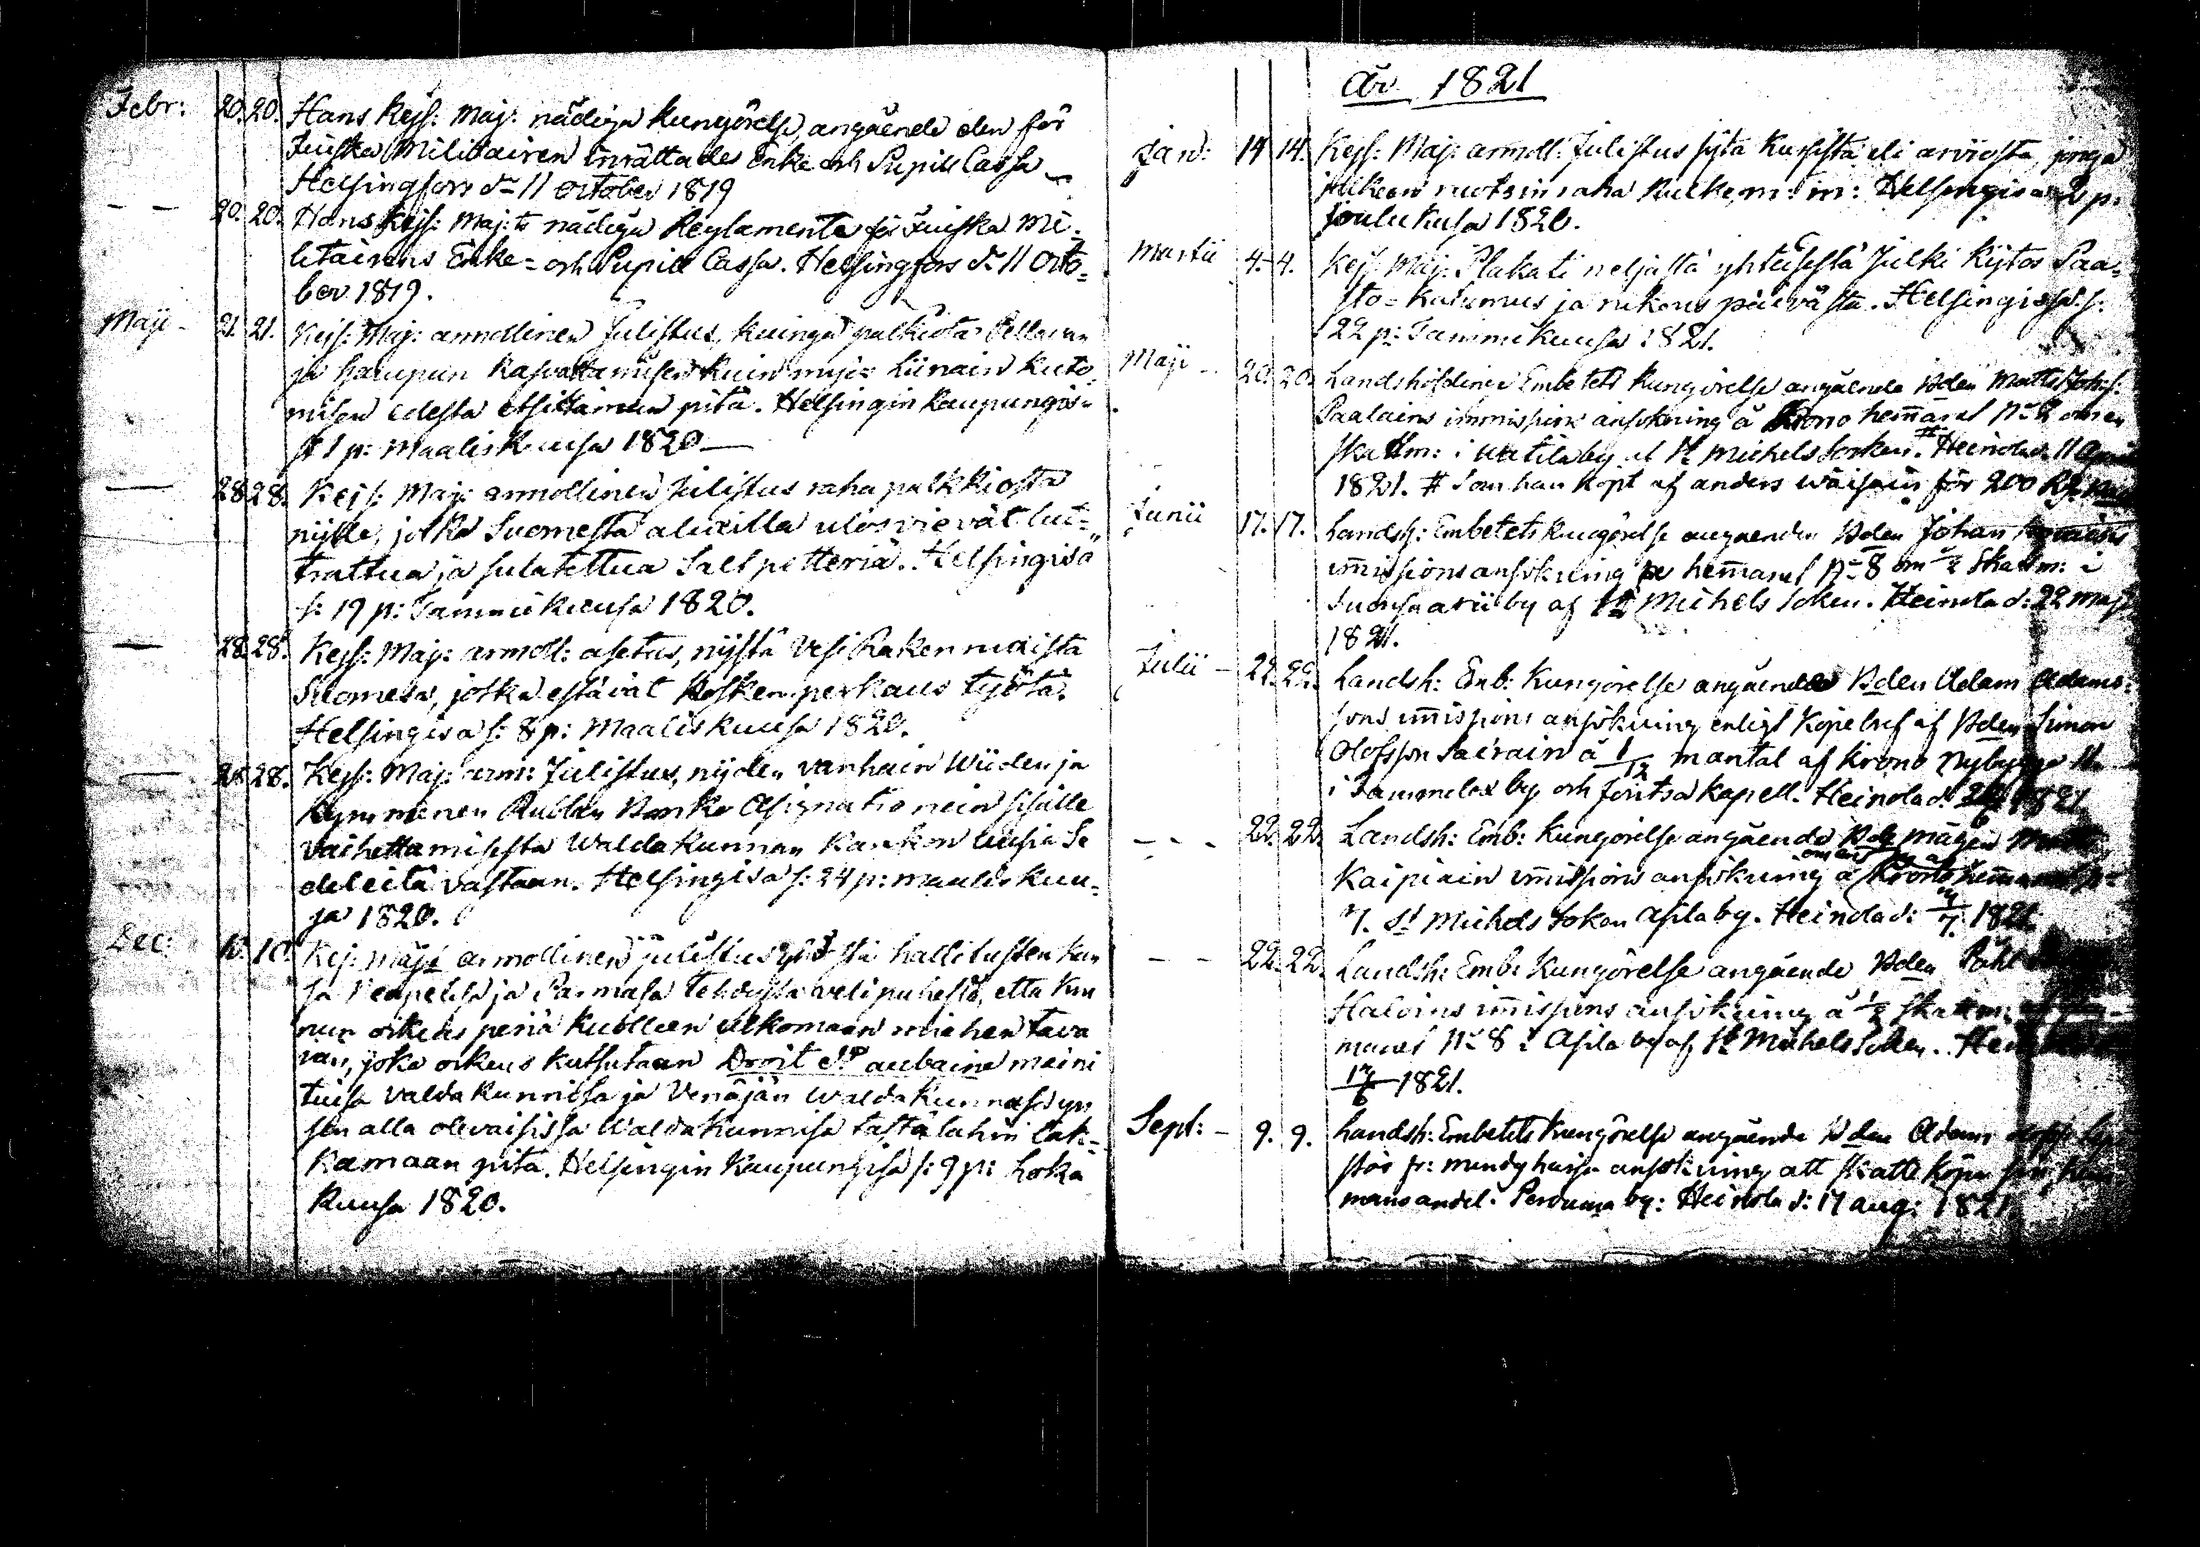 Febr: 20. 20. Hans Kejs: Maj: nådiga Kungörelse, angående den för
Finska Militairen Inrättades Enke och Pupill Cassa
Helsingfors d. 11 october 1819
— — 20. 20. Hans Kejs: Maj:ts nådiga Reglamente för Finska Mi-
litairens Enke- och Pupill Cassa. Helsingfors d. 11 octo-
ber 1819.
Maji - 21. 21. Kejs: Maj: armollinen Julistus, kuinga palkiota Pellavan
ja hampun Kasvattamisen kuin myös Liinain kuto-
misen edestä etsittämän pitä. Helsingin Kaupungis-
1 p: Maalis Kuusa 1820 —
— 28 28. Kejs: Maj: armollinen Julistus raha palkkiosta
nijlle, jotka Suomesta aluxilla ulosvievät lut-
trattua ja sulatettua Saltpetteriä. Helsingisä
s: 19 p: Tammikuusa 1820.
— 28. 28. Kejs: Maj: armoll: asetus, nijstä Vesi Rakennuxista
Suomesa, jotka estävät Kosken perkaus työtä.
Helsingisä s: 8 p: Maaliskuusa 1820.
— 28. 28. Kejs: Maj: arm: Julistus, nijden vanhain Wiiden ja
Kymmenen Rublan Banko Assignationein sisälle
Vaihettamisesta Waldakunnan Bankon uusia Se
deleitä vastaan. Helsingisä s: 24 p: maalis kuu-
sa 1820.
Dec: 10. 10. Kejs: Maj: armollinen julistus hallitusten kan
sa Neapelisa ja Parmasa tehdystä välipuhesta, että Kun
nun oikeus periä kuolleen ulkomaan miehen tava
ran, joka oikeus kutsutaan Droit d' aubaine maini
tuisa valdakunnisa ja Venäjän Waldakunnasa
sen alla olevaisissa Waldakunnisa tästälähin lak-
kamaan pitä. Helsingin Kaupungisa s: 9 p: Loka
Kuusa 1820.
År 1821
Jan: 14 14. Kejs: Maj: armoll: Julistus sijtä Kursista eli arviosta, jonga
jälkeen ruotsin raha kulke, m: m: Helsingisä 2 p:
joulukusa 1820.
Martii 4. 4. Kejs: Maj: Plakati neljästä yhteisestä Julki Kijtos Paa-
sto- Katumus ja rukous päivästä. Helsingissä s:
22 p: Tammikuusa 1821.
Maji - 20. 20. Landshöfdinge Embetets Kungörelse angående Bden Matts Johs:
Paalains immissions ansökning å Krono hemanet No 2 om en
skattm: i by af St Michels Socken. # Heinola d. 11 April
1821. # Som han köpt af anders Wäisäin för 200
Junii 17. 17. Landsh: Embetets Kungörelse angående Bden Johan
immissions ansökning hemanet No 8 om Skattm: i
by af St Michels Soken. Heinola d: 22 maji
1821.
Julii - 22. 22. Landsh: Emb: Kungörelse angående Bden Adam Adams-
sons immissions ansökning enligt Köpebref af Bden Simon
Olofsson Sairain å 1/12 mantal af Krono Nybygge
i Sammelax by och Joutsa Kapell. Heinola d: 1821
- - - 22. 22. Landsh: Emb: Kungörelse angående Mågen
Kaipiain immissions ansökning å Krono
7. St Michels Soken Asila by. Heinola d: 1821.
- - 22. 22. Landsh: Emb: Kungörelse angående Bden Påhl
Haloins immissions ansökning å skattm:
manet No 8 i Asila by af St Michels Soken.
1821.
Sept: - 9. 9. Landsh: Embetets Kungörelse angående Bden Adam
fr: mendyharju ansökning att skatte köpa
mans andel. by: Heinola d: 17 aug: 1821